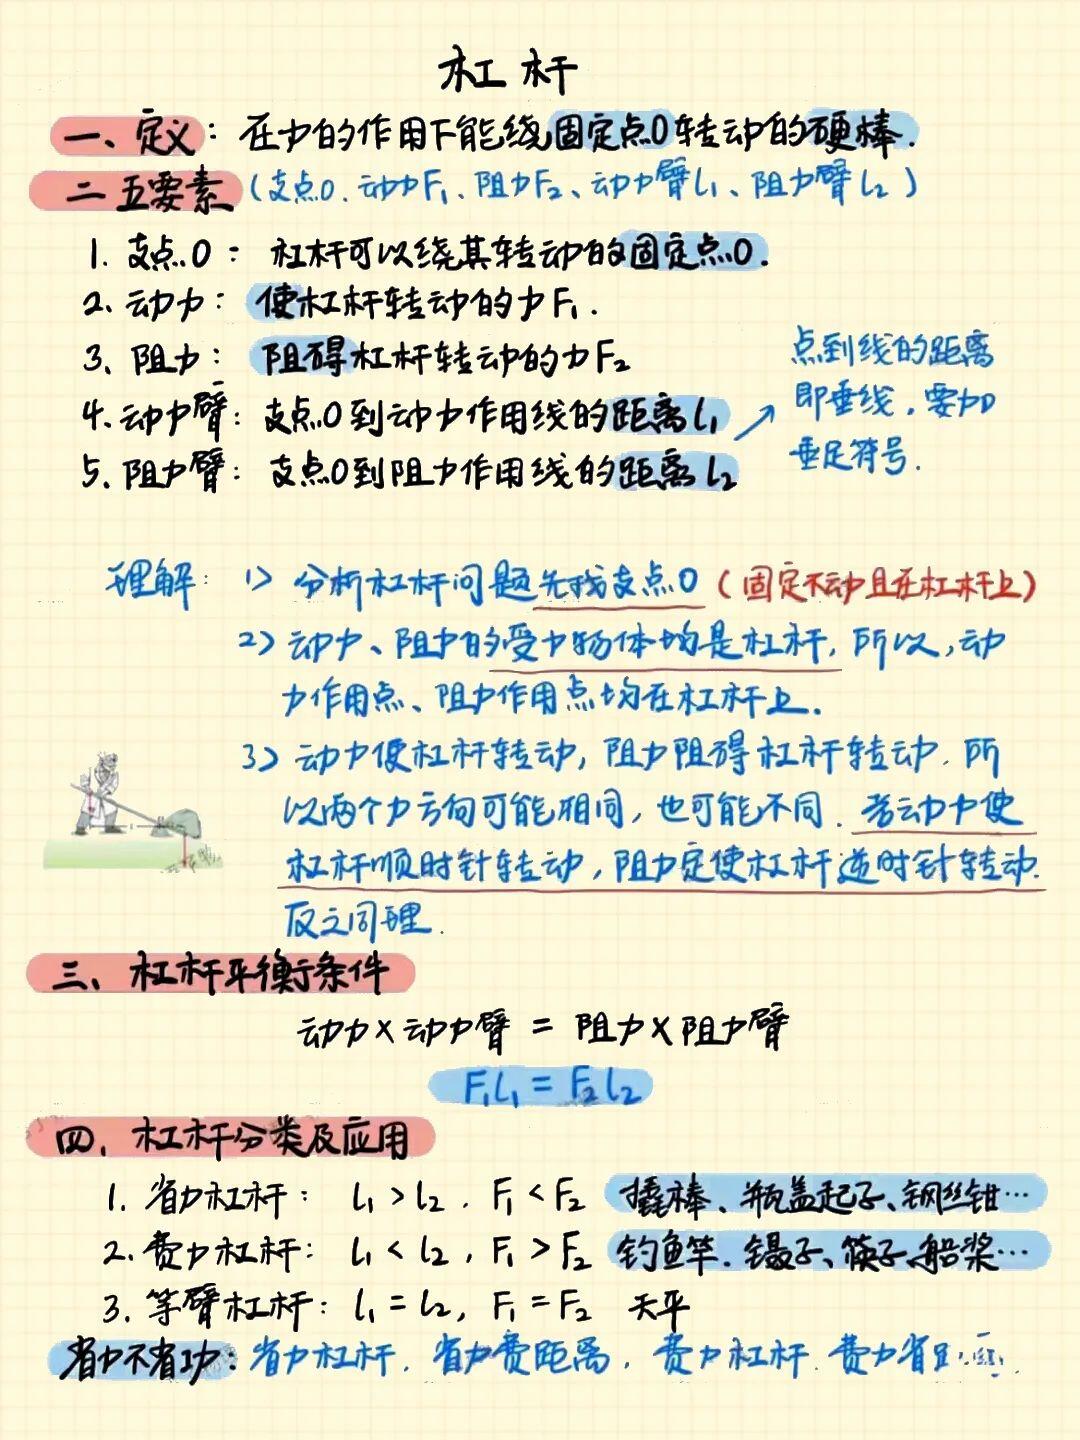 杠杆
一、定义：在力的作用下能绕固定点O转动的硬棒.
二 五要素 (支点O、动力F₁、阻力F₂、动力臂l₁、阻力臂l₂)
1. 支点O： 杠杆可以绕其转动的固定点O.
2. 动力： 使杠杆转动的力F₁.
3. 阻力： 阻碍杠杆转动的力F₂
4. 动力臂：支点O到动力作用线的距离l₁
5. 阻力臂：支点O到阻力作用线的距离l₂
点到线的距离
即垂线，要加
垂足符号.
理解： 1> 分析杠杆问题先找支点O (固定不动且在杠杆上)
2> 动力、阻力的受力物体均是杠杆，所以，动
力作用点、阻力作用点均在杠杆上.
3> 动力使杠杆转动，阻力阻碍杠杆转动.所
以两个力方向可能相同，也可能不同.若动力使
杠杆顺时针转动，阻力定使杠杆逆时针转动.
反之同理.
三、杠杆平衡条件
动力×动力臂 = 阻力×阻力臂
F₁l₁ = F₂l₂
四、杠杆分类及应用
1. 省力杠杆： l₁>l₂ . F₁<F₂ 撬棒、瓶盖起子、钢丝钳…
2. 费力杠杆： l₁<l₂ , F₁>F₂ 钓鱼竿.镊子、筷子、船桨…
3. 等臂杠杆：l₁=l₂, F₁=F₂ 天平
省力不省功：省力杠杆.省力费距离，费力杠杆.费力省